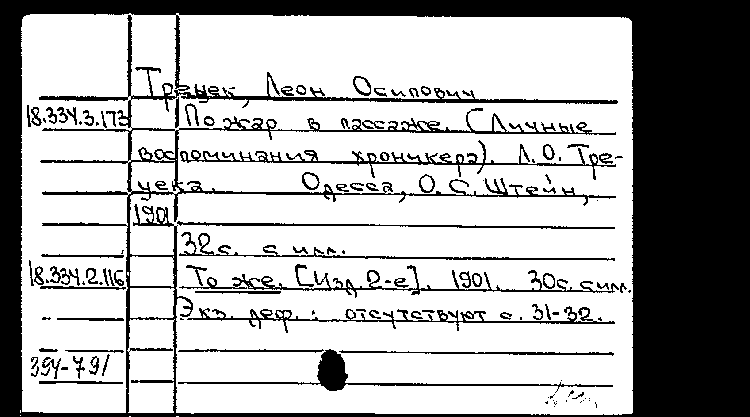 Трецек, Леон Осипович
18.334.3.173 Пожар в пассаже. (Личные
воспоминания хроникера). Л.О. Тре-
цека. Одесса, О.С. Штейн,
1901
32с. с илл.
18.334.2.116 То же. [Изд. 2-е]. 1901. 30с. с илл.
Экз. деф.: отсутствуют с. 31-32.
394-791